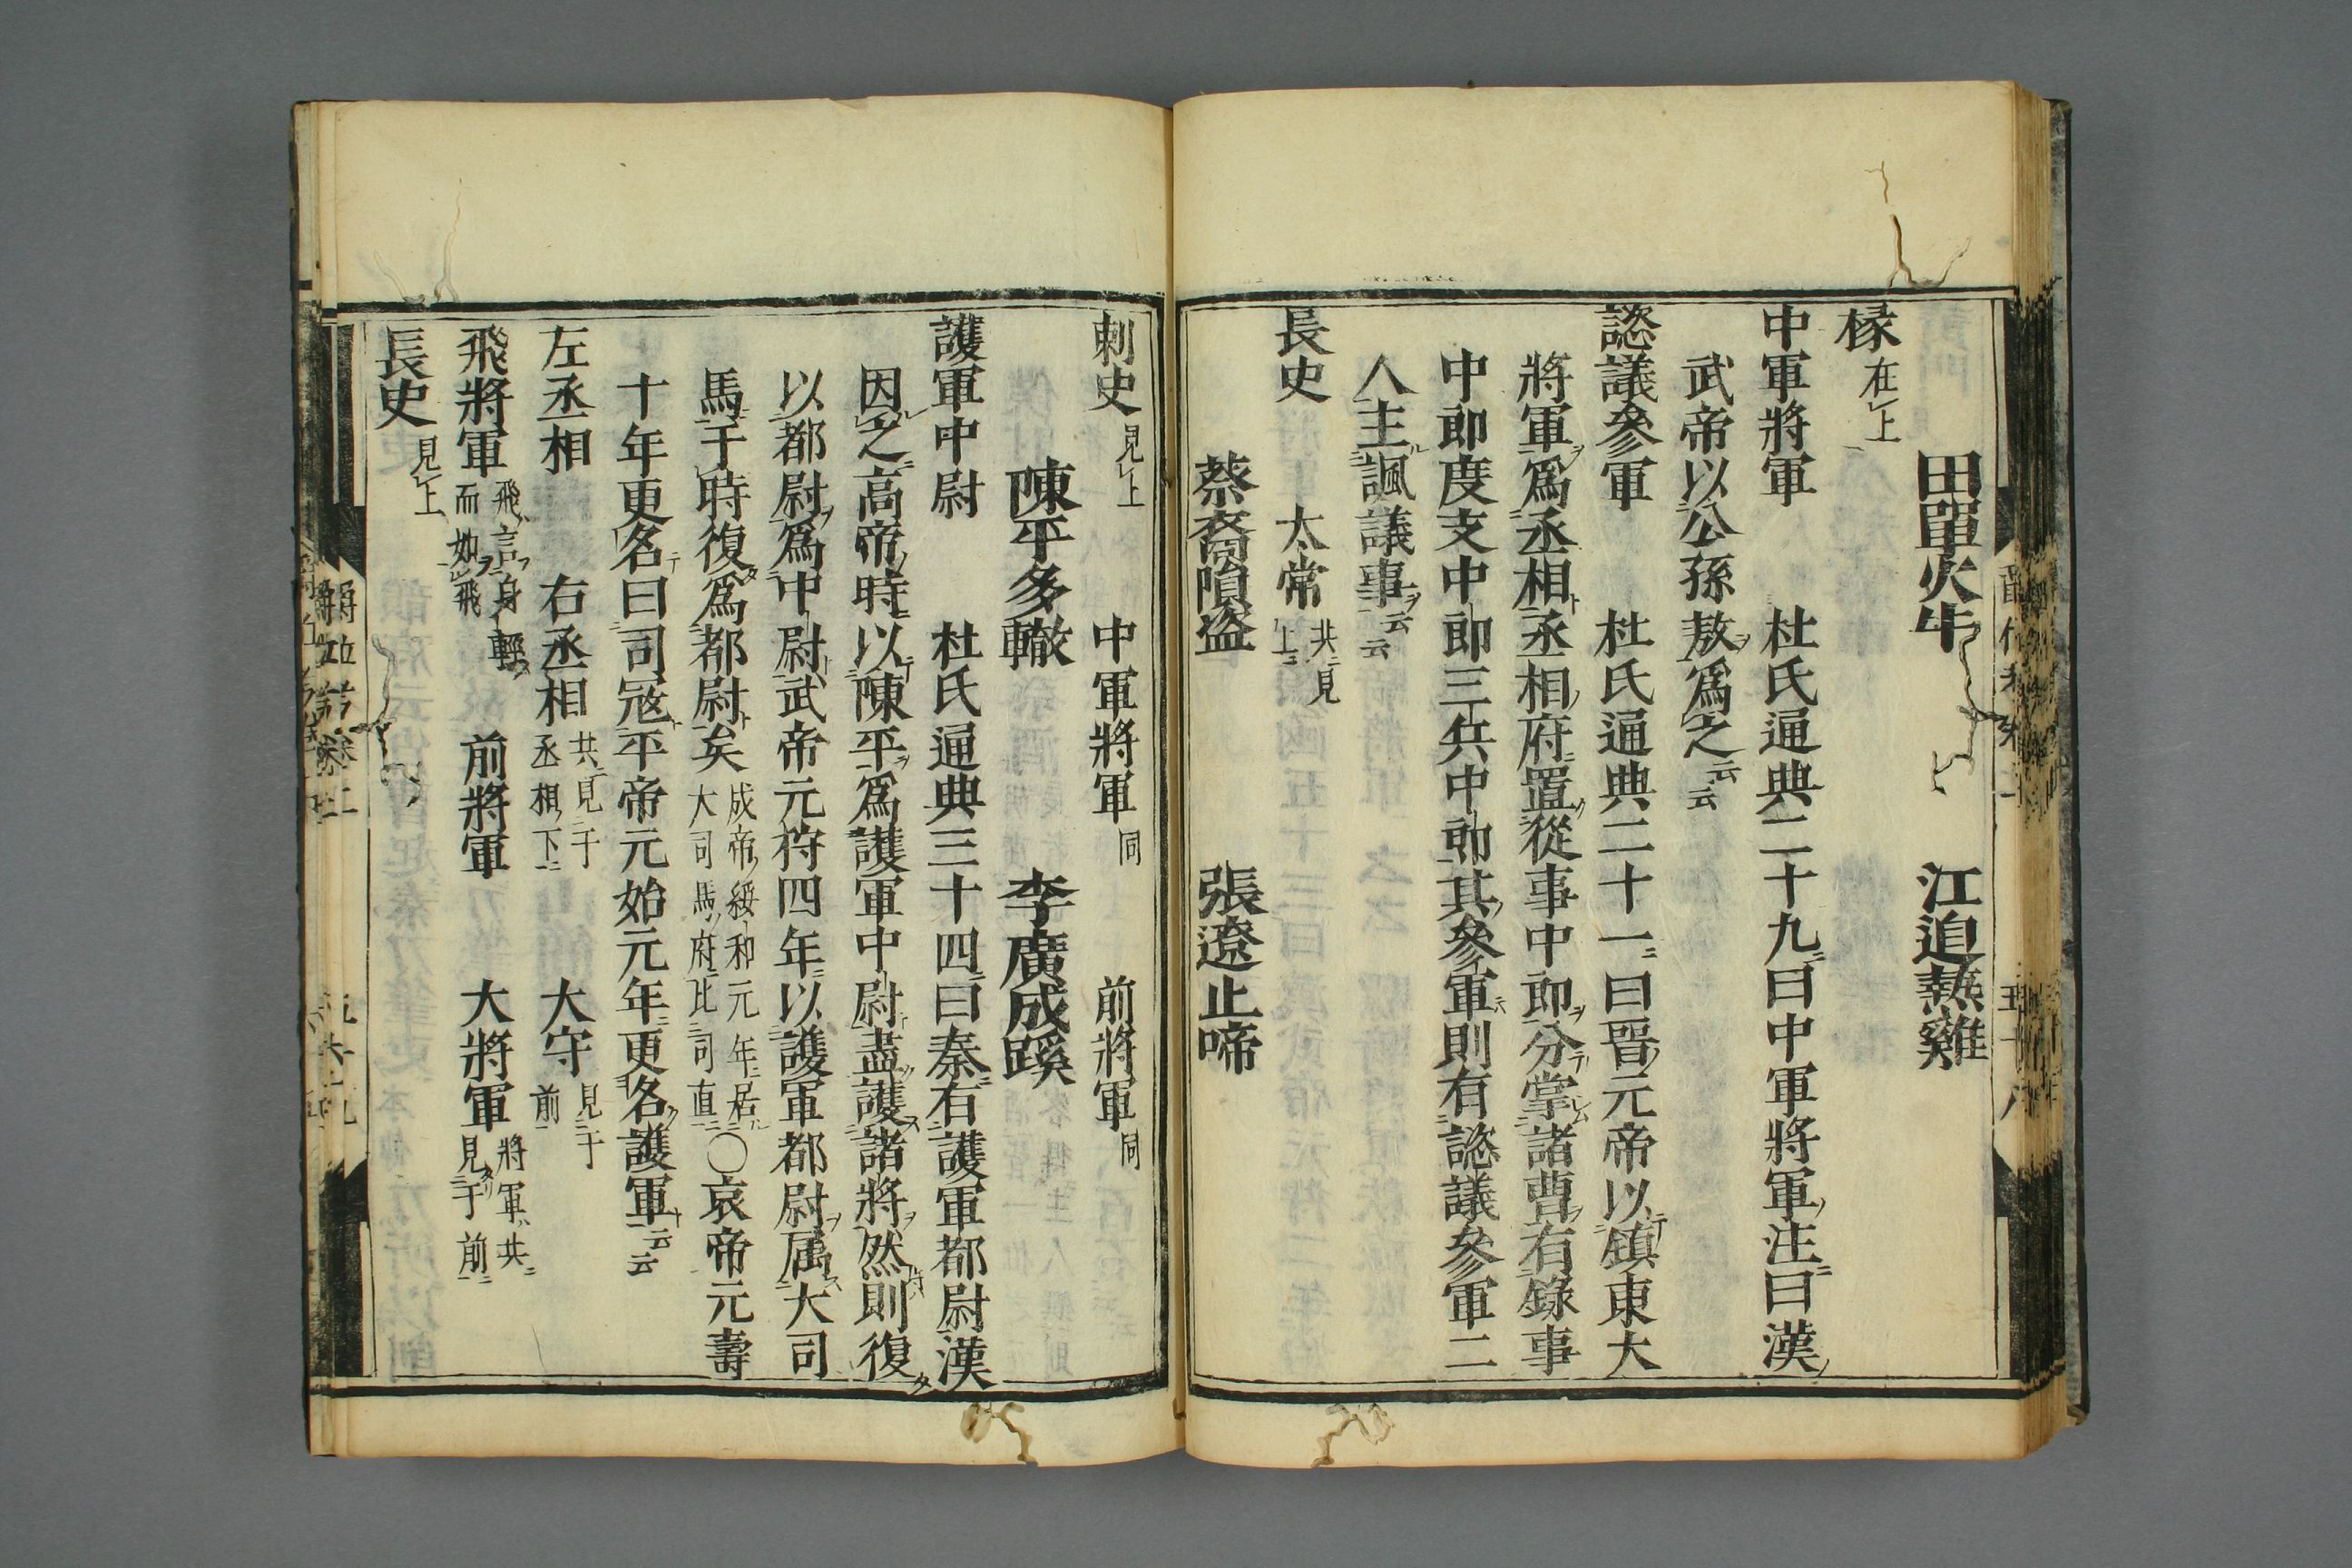 田單火牛　江逌爇雞
椽在上
中軍將軍　杜氏通典二十九曰中軍將軍注曰漢
武帝以公孫敖爲之云云
諮議參軍　杜氏通典二十一曰晉元帝以鎮東大
將軍爲丞相丞相府置從事中郎分掌諸曹有錄事
中郎度支中郎三兵中郎其參軍則有諮議參軍二
人主諷議事云云
長史　太常共見上
蔡裔隕盜　張遼止啼
刺史見上　中軍將軍同　前將軍同
陳平多轍　李廣成蹊
護軍中尉　杜氏通典三十四曰秦有護軍都尉漢
因之高帝時以陳平爲護軍中尉盡護諸將然則復
以都尉爲中尉武帝元狩四年以護軍都尉属大司
馬于時復爲都尉矣成帝綏和元年居大司馬府比司直○哀帝元壽
十年更名曰司寇平帝元始元年更名護軍云云
左丞相　右丞相共見于丞相下　大守見于前
飛將軍飛言身輕而如飛　前將軍　大將軍將軍共見于前
長史見上